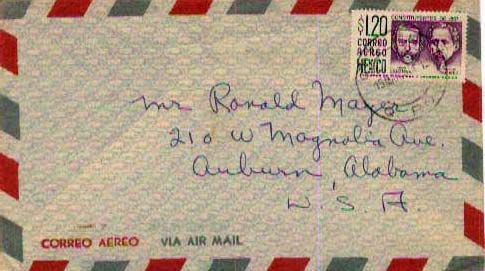 $1.20
CONSTITUYENTES DE 1857
CORREO
AEREO
MEXICO
Mr Ronald Mayer
210 W Magnolia Ave.
Auburn, Alabama
U. S. A.
CORREO AEREO VIA AIR MAIL